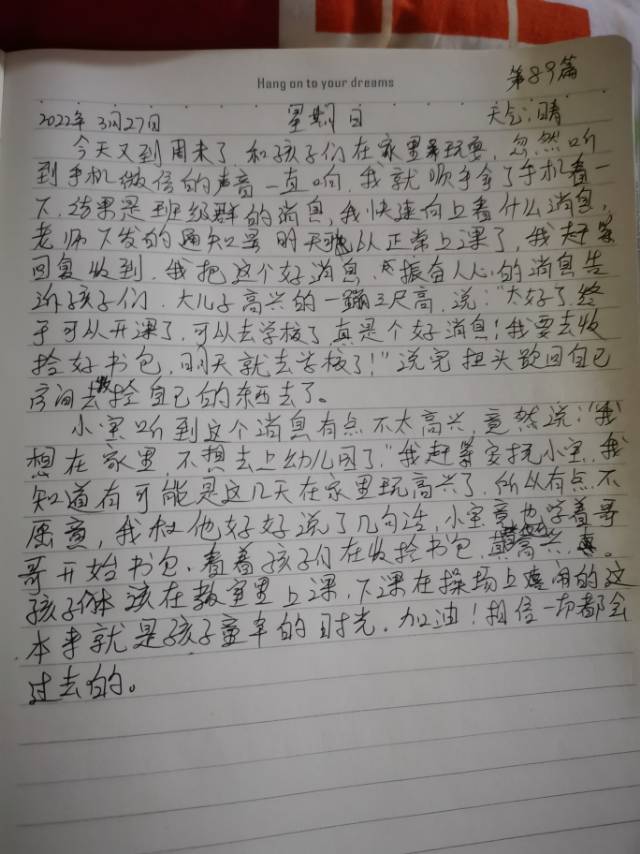 Hang on to your dreams
第89篇
2022年3月27日 星期日 天气:晴
今天又到周末了,和孩子们在家里玩耍,忽然听
到手机微信的声音一直响,我就顺手拿了手机看一
下,结果是班级群的消息,我快速向上看什么消息,
老师下发的通知是明天可以正常上课了,我赶紧
回复收到,我把这个好消息,振奋人心的消息告
诉孩子们,大儿子高兴的一蹦三尺高,说:“太好了,终
于可以开课了,可以去学校了真是个好消息!我要去收
拾好书包,明天就去学校了!”说完扭头跑回自己
房间去收拾自己的东西去了。
小宝听到这个消息有点不太高兴,竟然说:“我
想在家里,不想去上幼儿园了”我赶紧安抚小宝,我
知道有可能是这几天在家里玩高兴了,所以有点不
愿意,我和他好好说了几句话,小宝竟也学着哥
哥开始书包,看着孩子们在收拾书包,真高兴。
孩子们本该在教室里上课,下课在操场上嬉闹的这
本来就是孩子童年的时光,加油!相信一切都会
过去的。